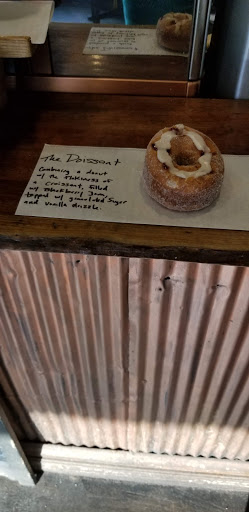 The Doissant
Combining a donut
w/ the flakiness of
a Croissant, filled
w/ Blackberry Jam,
topped w/ granulated Sugar
and vanilla drizzle.